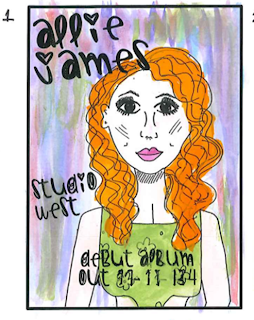 1
allie
james
studio
west
debut album
out 11-11-134